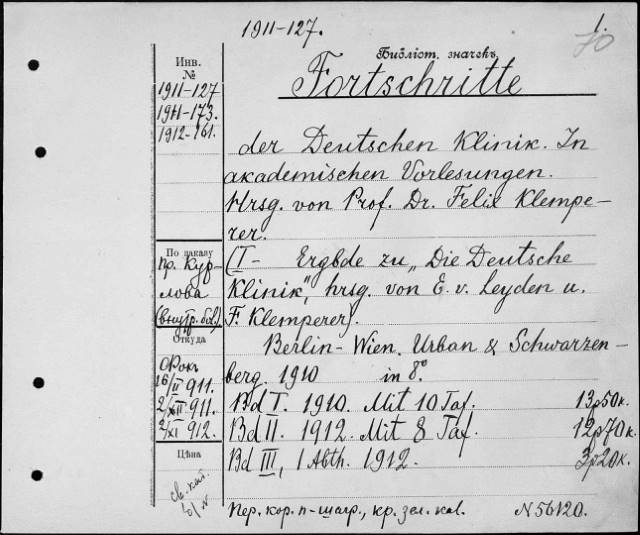 1911-127.
1.
70
Библіот. значекъ
Инв.
№
1911-127
1911-173.
1912-161.
Fortschritte
der Deutschen Klinik. In
akademischen Vorlesungen.
Hrsg. von Prof. Dr. Felix Klempe-
rer.
(I- Ergbde zu „Die Deutsche
Klinik", hrsg. von E. v. Leyden u.
F. Klemperer).
Berlin-Wien. Urban & Schwarzen-
berg. 1910 in 8º
Bd I. 1910. Mit 10 Taf. 13р50к.
Bd II. 1912. Mit 8 Taf. 12р70к.
Bd III, 1 Abth. 1912. 3р20к.
По заказу
Пр. Кур-
лова
(внутр. бол.)
Откуда
16/II 911.
2/XII 911.
2/XI 912.
Цѣна
св. кат.
Пер. кор. п-шагр., кр. зол. кол. N56120.